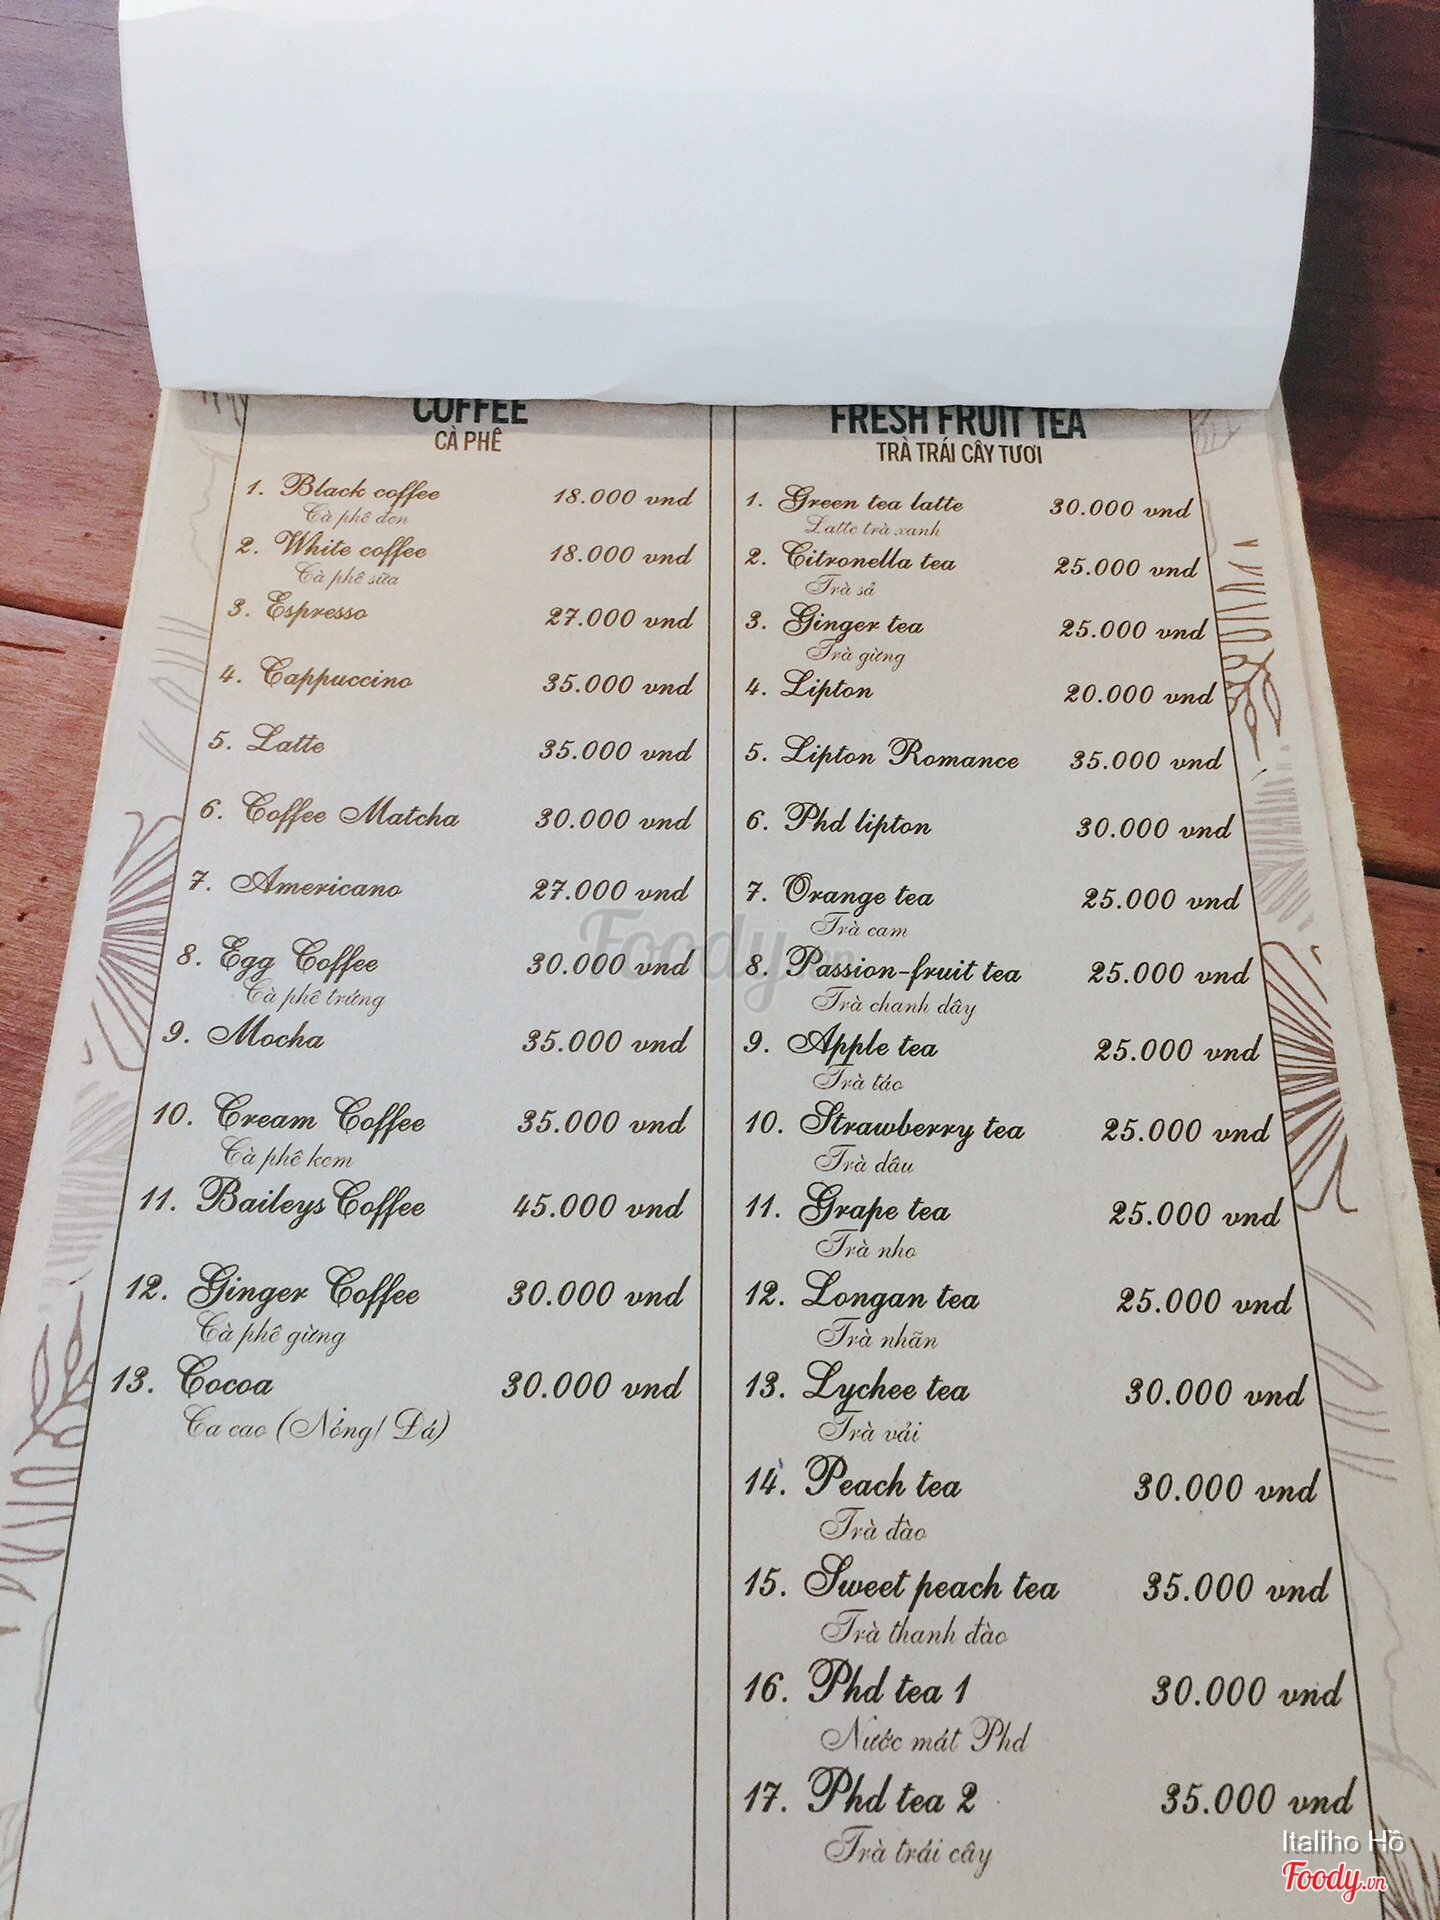 COFFEE
CÀ PHÊ
1. Black coffee 18.000 vnd
Cà phê đen
2. White coffee 18.000 vnd
Cà phê sữa
3. Espresso 27.000 vnd
4. Cappuccino 35.000 vnd
5. Latte 35.000 vnd
6. Coffee Matcha 30.000 vnd
7. Americano 27.000 vnd
8. Egg Coffee 30.000 vnd
Cà phê trứng
9. Mocha 35.000 vnd
10. Cream Coffee 35.000 vnd
Cà phê kem
11. Baileys Coffee 45.000 vnd
12. Ginger Coffee 30.000 vnd
Cà phê gừng
13. Cocoa 30.000 vnd
Ca cao (Nóng/ Đá)
FRESH FRUIT TEA
TRÀ TRÁI CÂY TƯƠI
1. Green tea latte 30.000 vnd
Latte trà xanh
2. Citronella tea 25.000 vnd
Trà sả
3. Ginger tea 25.000 vnd
Trà gừng
4. Lipton 20.000 vnd
5. Lipton Romance 35.000 vnd
6. Phd lipton 30.000 vnd
7. Orange tea 25.000 vnd
Trà cam
8. Passion-fruit tea 25.000 vnd
Trà chanh dây
9. Apple tea 25.000 vnd
Trà táo
10. Strawberry tea 25.000 vnd
Trà dâu
11. Grape tea 25.000 vnd
Trà nho
12. Longan tea 25.000 vnd
Trà nhãn
13. Lychee tea 30.000 vnd
Trà vải
14. Peach tea 30.000 vnd
Trà đào
15. Sweet peach tea 35.000 vnd
Trà thanh đào
16. Phd tea 1 30.000 vnd
Nước mát Phd
17. Phd tea 2 35.000 vnd
Trà trái cây
Foody.vn
Italiho Hồ
Foody.vn